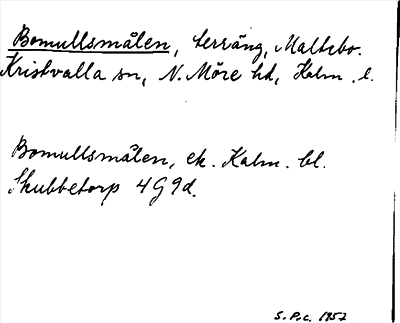 Bomullsmålen, terräng, Maltebo.
Kristvalla sn, N. Möre hd, Kalm. l.
Bomullsmålen, ek. Kalm. bl.
Skubbetorp 4G9d.
S. P:c. 1957